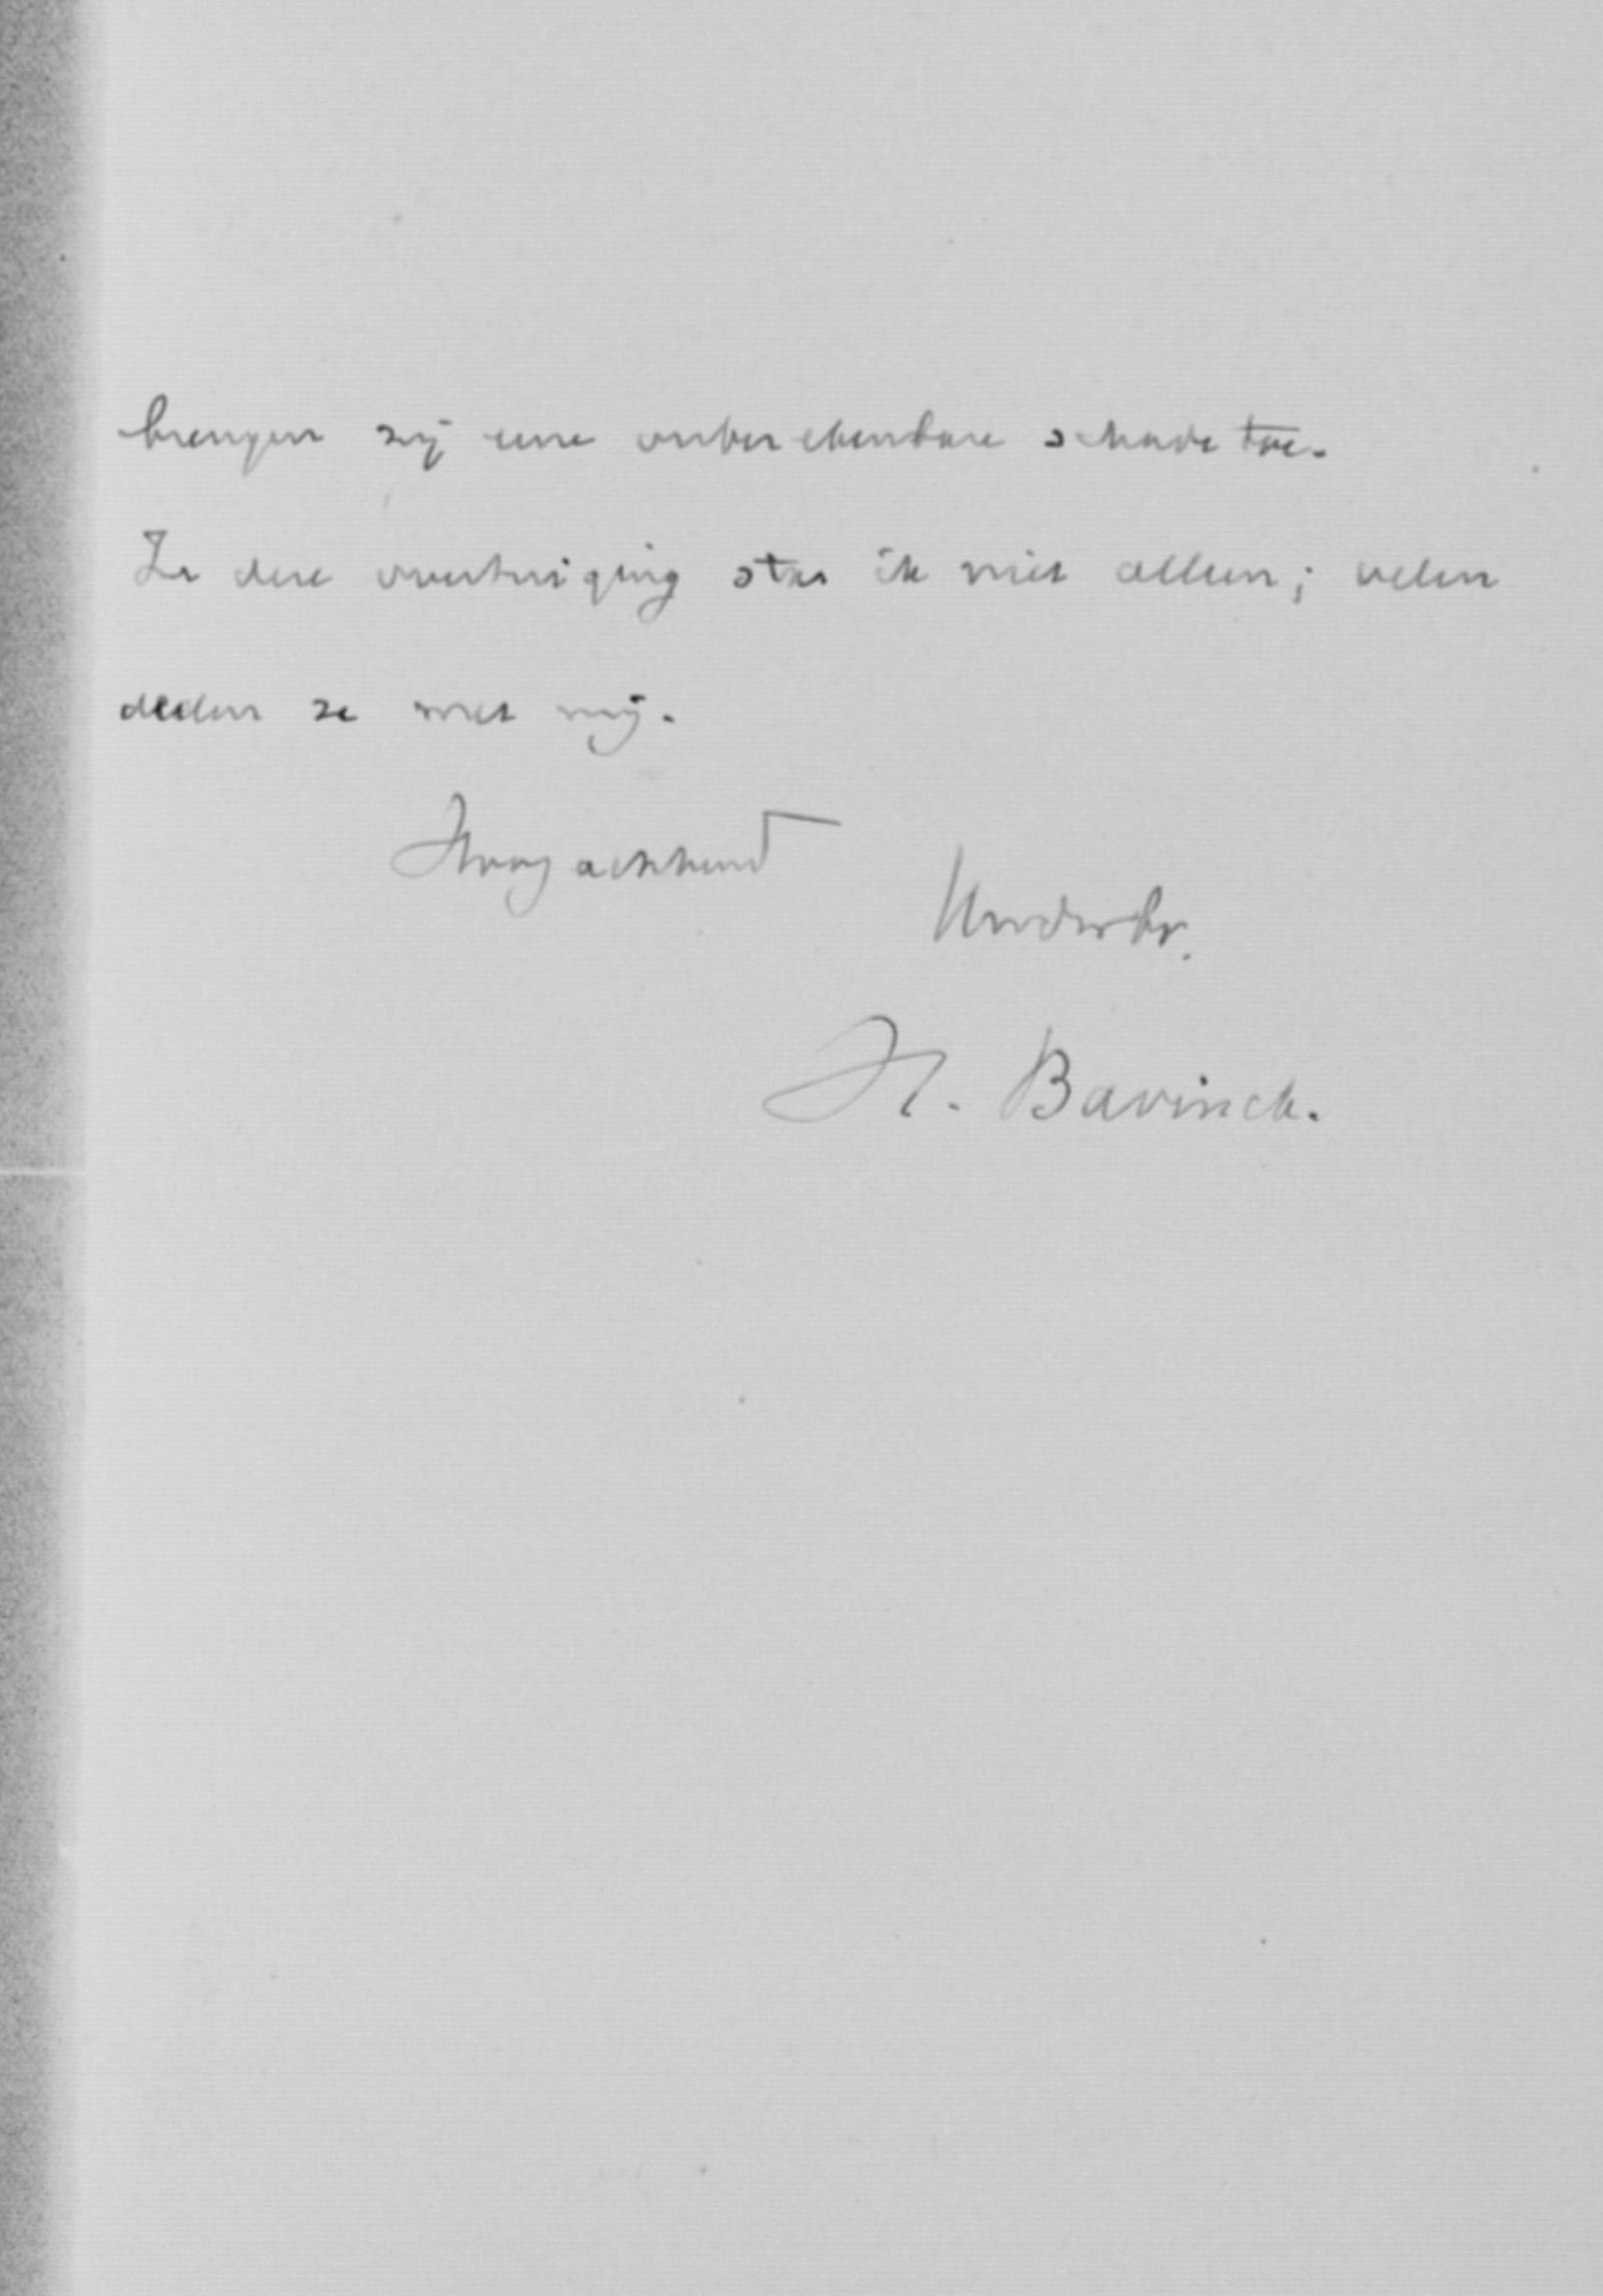 brengen zij eene onberekenbare schade toe.
In deze overtuiging sta ik niet alleen; velen
deelen ze met mij.
Hoogachtend
Uw dw br.
H. Bavinck.